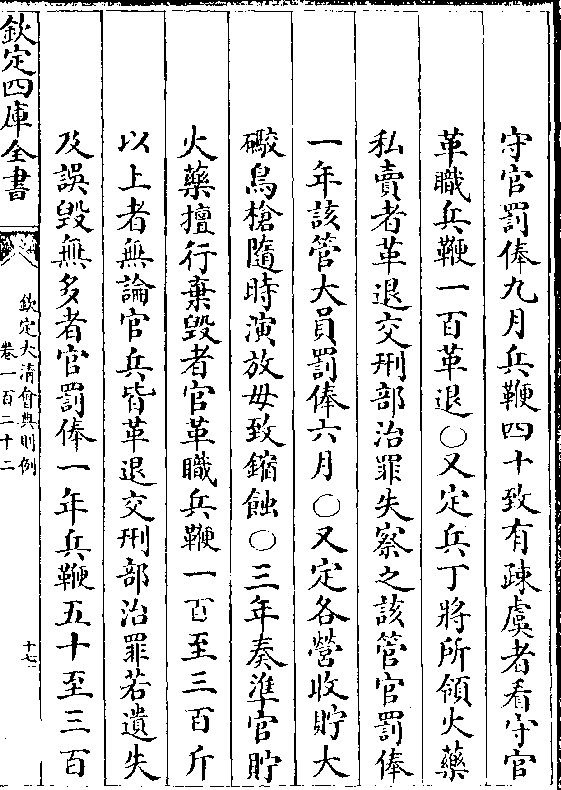 守官罰俸九月兵鞭四十致有疎虞者看守官
革職兵鞭一百革退○又定兵丁將所領火藥
私賣者革退交刑部治罪失察之該管官罰俸
一年該管大員罰俸六月○又定各營收貯大
礮鳥槍隨時演放毋致鏥蝕○三年奏準官貯
火藥擅行棄毀者官革職兵鞭一百至三百斤
以上者無論官兵皆革退交刑部治罪若遺失
及誤毀無多者官罰俸一年兵鞭五十至三百
欽定四庫全書
欽定大清會典則例
卷一百二十二
十七